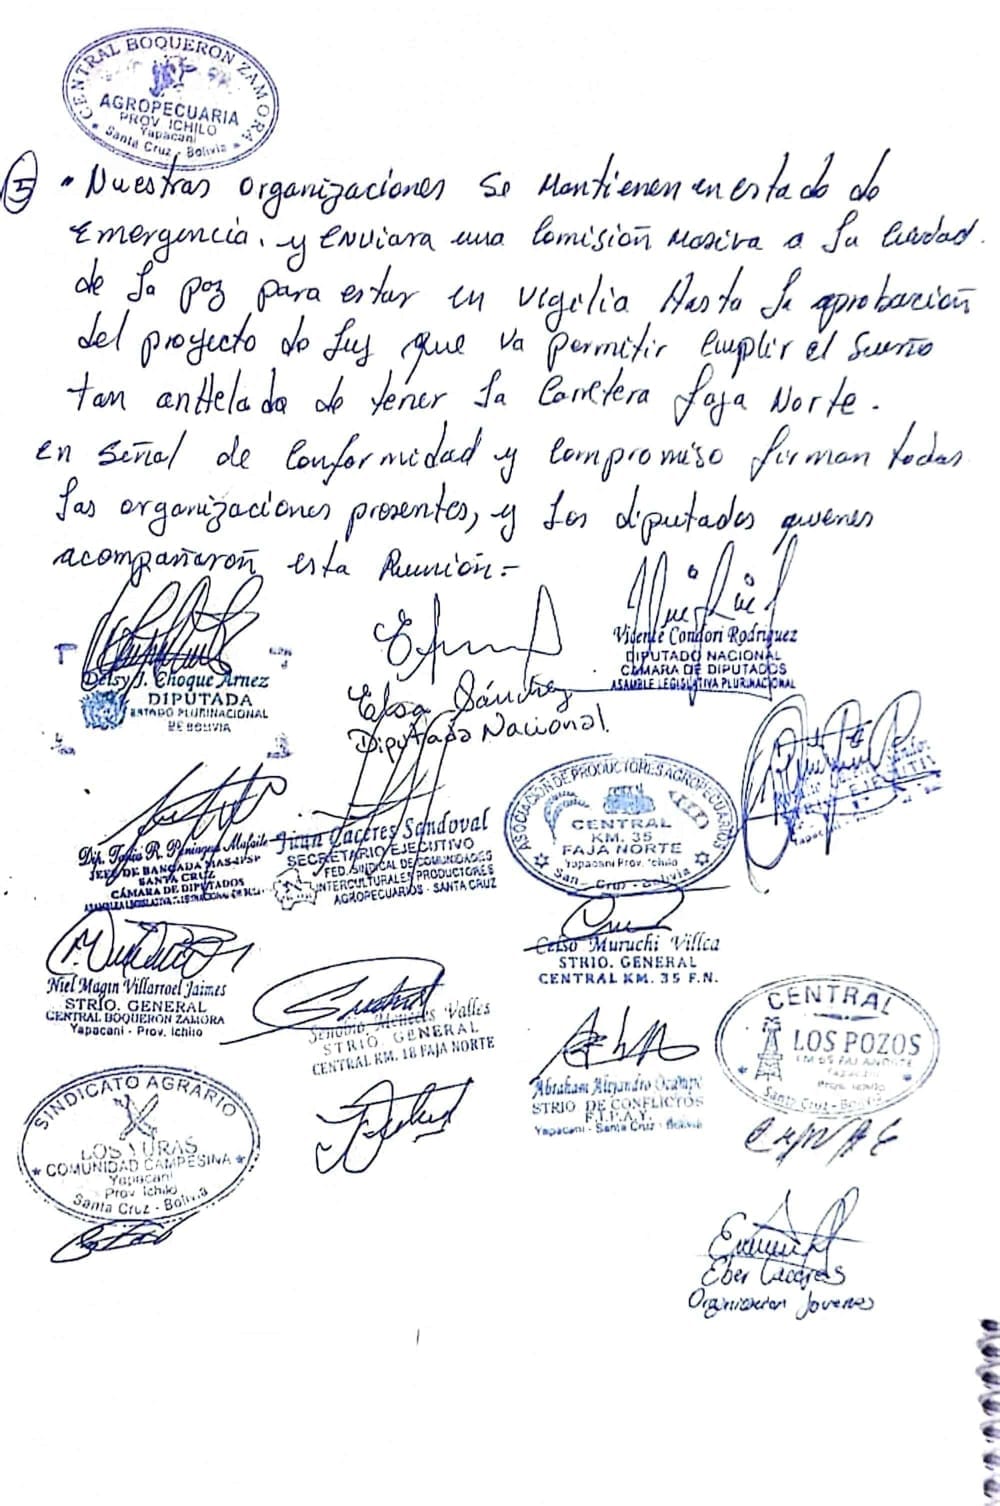 CENTRAL BOQUERON ZAMORA
AGROPECUARIA
PROV ICHILO
Yapacani
Santa Cruz - Bolivia
5 • Nuestras organizaciones se Mantienen en estado de
Emergencia. y enviara una Comisión Masiva a la Ciudad.
de la paz para estar en vigilia Hasta la aprobación
del proyecto de ley que va permitir cumplir el Sueño
tan anHelado de tener la Carretera faja Norte.
en señal de Conformidad y compromiso firman todas
las organizaciones presentes, y los diputados quienes
acompañaron esta Reunión.-
Delsy J. Choque Arnez
DIPUTADA
ESTADO PLURINACIONAL
DE BOLIVIA
Elsa Sánchez
Diputada Nacional.
Vicente Condori Rodriguez
DIPUTADO NACIONAL
CÁMARA DE DIPUTADOS
ASAMBLE LEGISLATIVA PLURINACIONAL
Dip. R.
JEFE DE BANCADA MAS-IPSP
SANTA CRUZ
CÁMARA DE DIPUTADOS
Juan Caceres Sandoval
SECRETARIO EJECUTIVO
FED. SINDICAL DE COMUNIDADES
INTERCULTURALES PRODUCTORES
AGROPECUARIOS - SANTA CRUZ
ASOCIACION DE PRODUCTORES AGROPECUARIOS
CENTRAL
KM. 35
FAJA NORTE
Yapacani Prov. Ichilo
Santa Cruz - Bolivia
Celso Muruchi Villca
STRIO. GENERAL
CENTRAL KM. 35 F.N.
Niel Magin Villarroel Jaimes
STRIO. GENERAL
CENTRAL BOQUERON ZAMORA
Yapacani - Prov. Ichilo
Valles
STRIO. GENERAL
CENTRAL KM. 18 FAJA NORTE
Abraham Alejandro Ocampo
STRIO DE CONFLICTOS
Yapacani - Santa Cruz - Bolivia
CENTRAL
LOS POZOS
KM 65 FAJA NORTE
Yapacani
Prov. Ichilo
Santa Cruz - Bolivia
SINDICATO AGRARIO
LOS YURAS
COMUNIDAD CAMPESINA
Yapacani
Prov Ichilo
Santa Cruz - Bolivia
Eber Caceres
Organizacion Jovenes